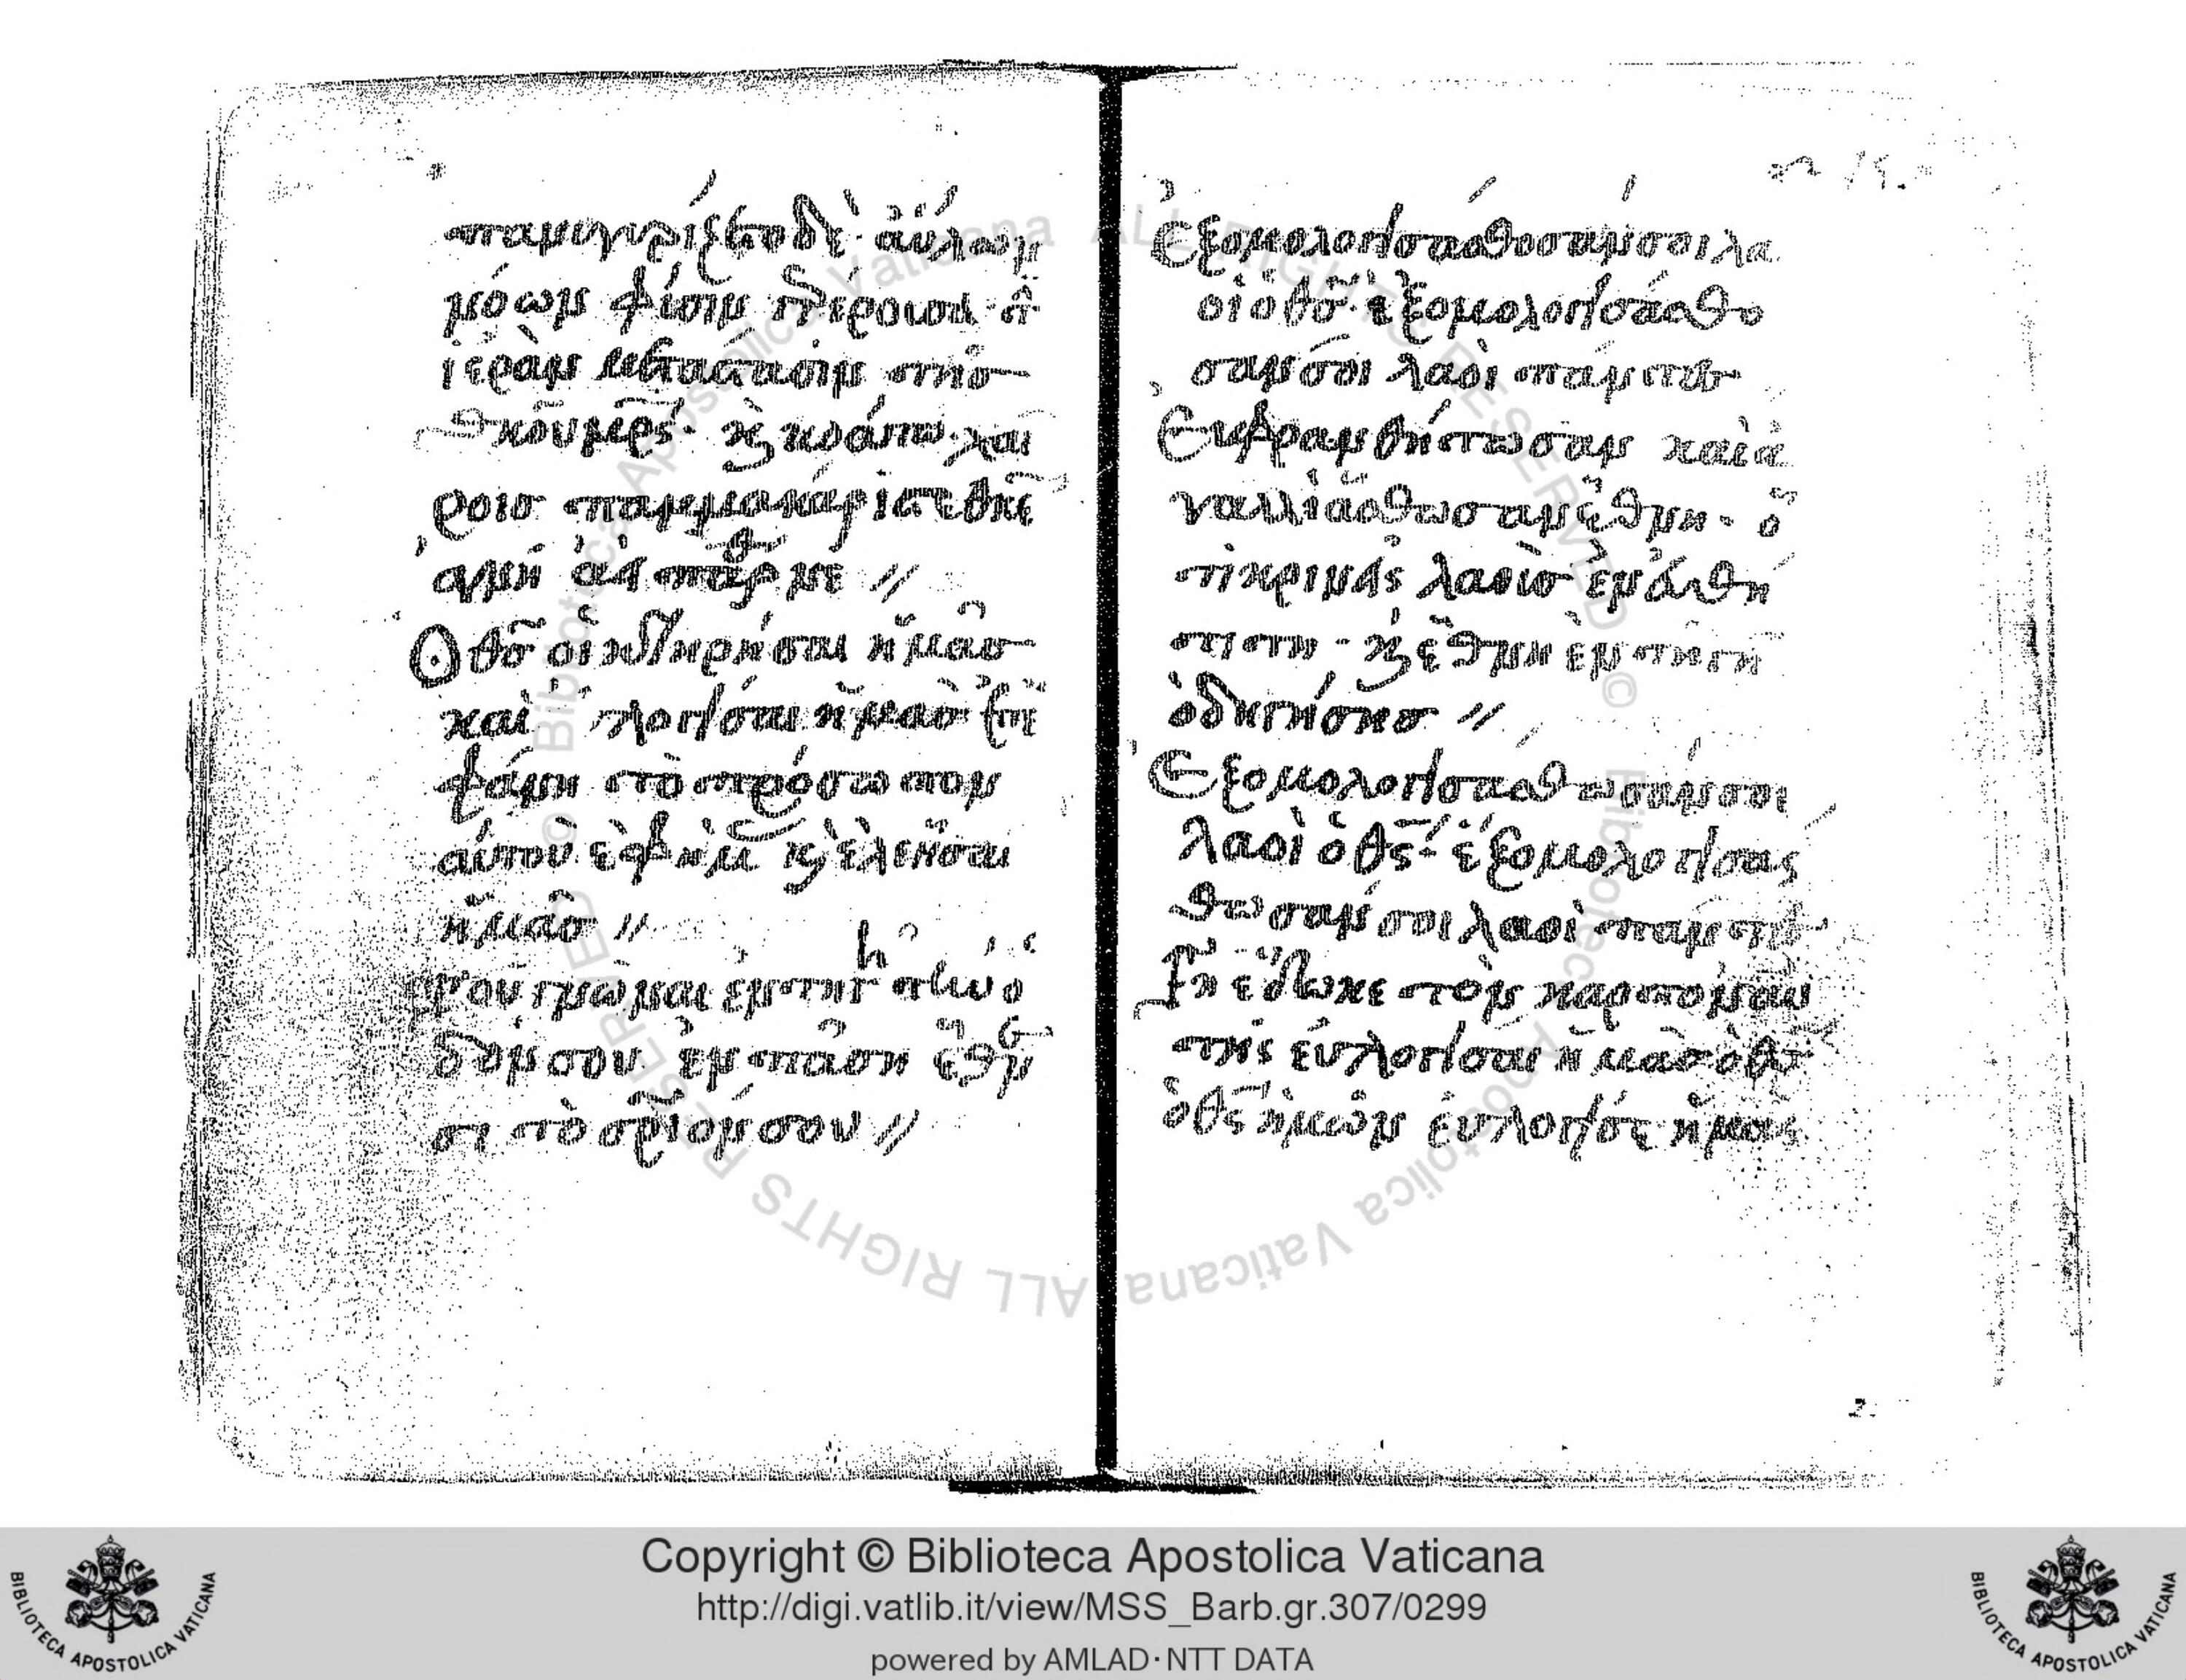 ἱερὰν μετάστασιν τῆς
Θκου καὶ κράζω χαί
ροις παμμακάριστε θκε
αγνὴ
Ο θσ οἰκτηρήσαι ἡμᾶσ
καὶ λογήσαι ἡμᾶσ ἐπι
φάνη τὸ πρόσωπον
αὐτοῦ ἐφ ἡμ κ ἐλεήσαι
ἡμᾶσ //
γνῶναι ἐν τῆ γῆ τὴν ὁ
δόν σου ἐν πάση ἔθν
σι τὸ σριόν σου //
Εξομολογησάσθοσάν σοι λα
οὶ ὁ θσ ἐξομολογησάσθο
σάν σοι λαοὶ πάντεσ
Ευφρανθήτωσαν καὶ ἀ
γαλλιάσθωσαν ἔθνη · ὅ
τι κρινεῖς λαοὺσ ἐν εὐθύ
τιτη · κ ἔθνη ἐν τῆ γῆ
ὁδηγήσησ //
Εξομολογησάσθωσάν σοι
λαοὶ ὁ θς ἐξομολογησάς
θωσάν σοι λαοὶ πάντεσ
Γῆ ἔδωκε τὸν καρπὸν αυ
τῆς εὐλογήσαι ἡμᾶσ ὁ θσ
ὁ θς ἡμῶν εὐλογήσε ἡμας
Copyright © Biblioteca Apostolica Vaticana
http://digi.vatlib.it/view/MSS_Barb.gr.307/0299
powered by AMLAD·NTT DATA
BIBLIOTECA APOSTOLICA VATICANA
BIBLIOTECA APOSTOLICA VATICANA